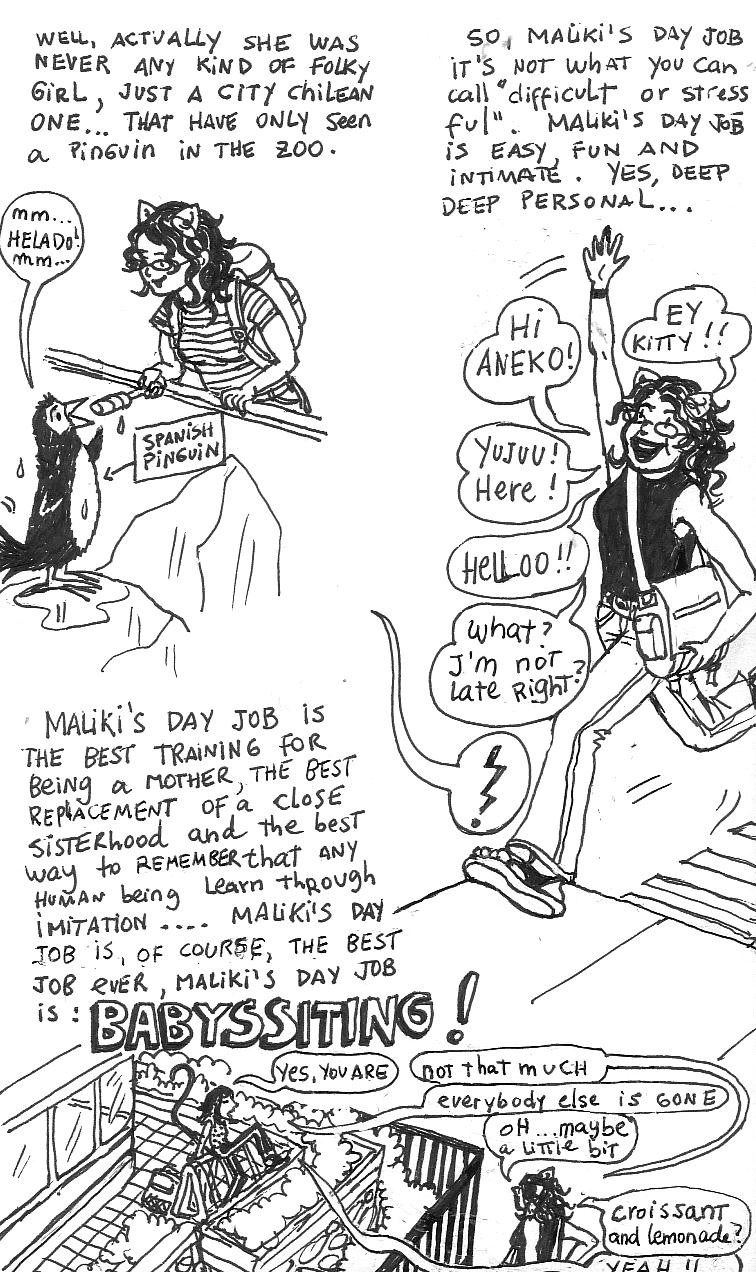 WELL, ACTUALLY SHE WAS
NEVER ANY KIND OF FOLKY
GIRL, JUST A CITY CHILEAN
ONE... THAT HAVE ONLY SEEN
a PINGUIN IN THE ZOO.
mm...
HELADO!
mm...
SPANISH
PINGUIN
SO, MALIKI'S DAY JOB
IT'S NOT WHAT YOU CAN
call "difficult or stress
ful". MALIKI'S DAY JOB
IS EASY, FUN AND
INTIMATE. YES, DEEP
DEEP PERSONAL...
EY
KITTY!!
Hi
ANEKO!
YUJUU!
Here!
HELLOO!!
What?
I'm not
late Right?
MALIKI'S DAY JOB IS
THE BEST TRAINING FOR
Being a MOTHER, THE BEST
REPLACEMENT OF a close
SISTERhood and the best
way to REMEMBER that ANY
HUMAN being Learn through
IMITATION .... MALIKI'S DAY
JOB IS, OF COURSE, THE BEST
JOB EVER, MALIKI'S DAY JOB
is: BABYSSITING!
Yes, YOU ARE
not that much
everybody else is GONE
OH...maybe
a LITTLE bit
croissant
and lemonade?
YEAH!!